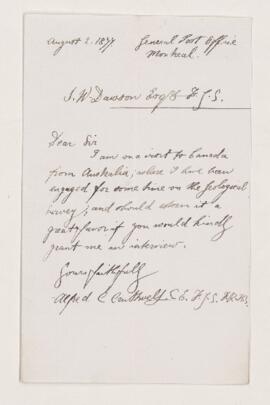 August 2. 1877. General Post Office
Montreal.
J. W. Dawson Esqre F.G.S.
Dear Sir
I am on a visit to Canada
from Australia, where I have been
engaged for some time on the Geological
survey; and should deem it a
great favor if you would kindly
grant me an interview.
Yours faithfully
Alfred C. C.E. F.G.S.